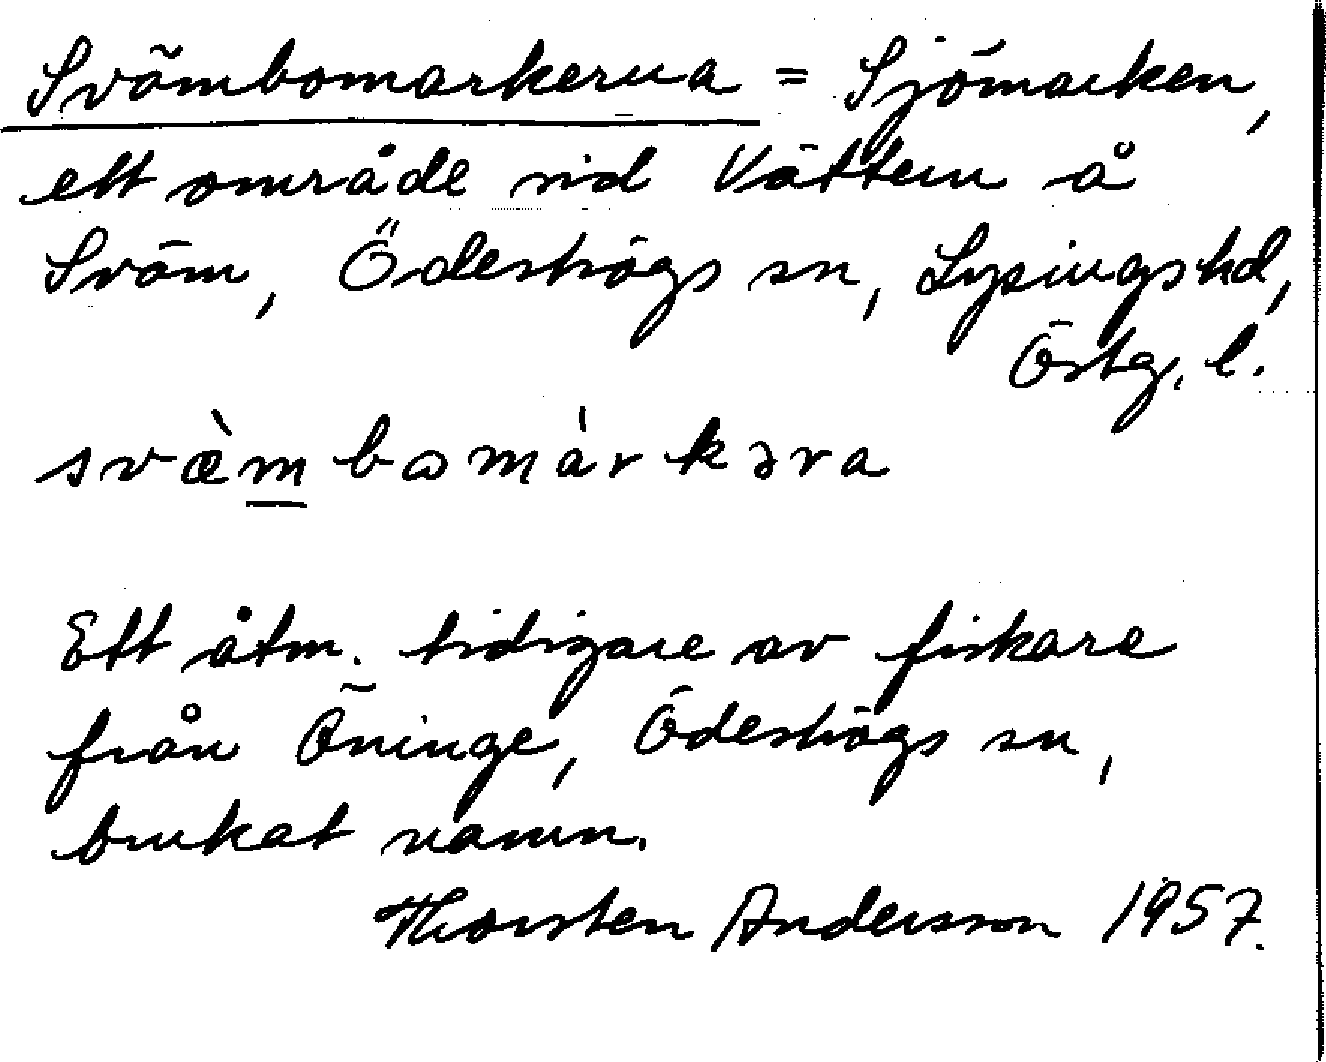 Svämbomarkerna = Sjömarken,
ett område vid Vättern å
Sväm, Ödeshögs sn, Lysingshd,
Östg. l.
svæ̀mbωmárkəra
Ett åtm. tidigare av fiskare
från Öninge, Ödeshögs sn,
brukat namn.
Thorsten Andersson 1957.